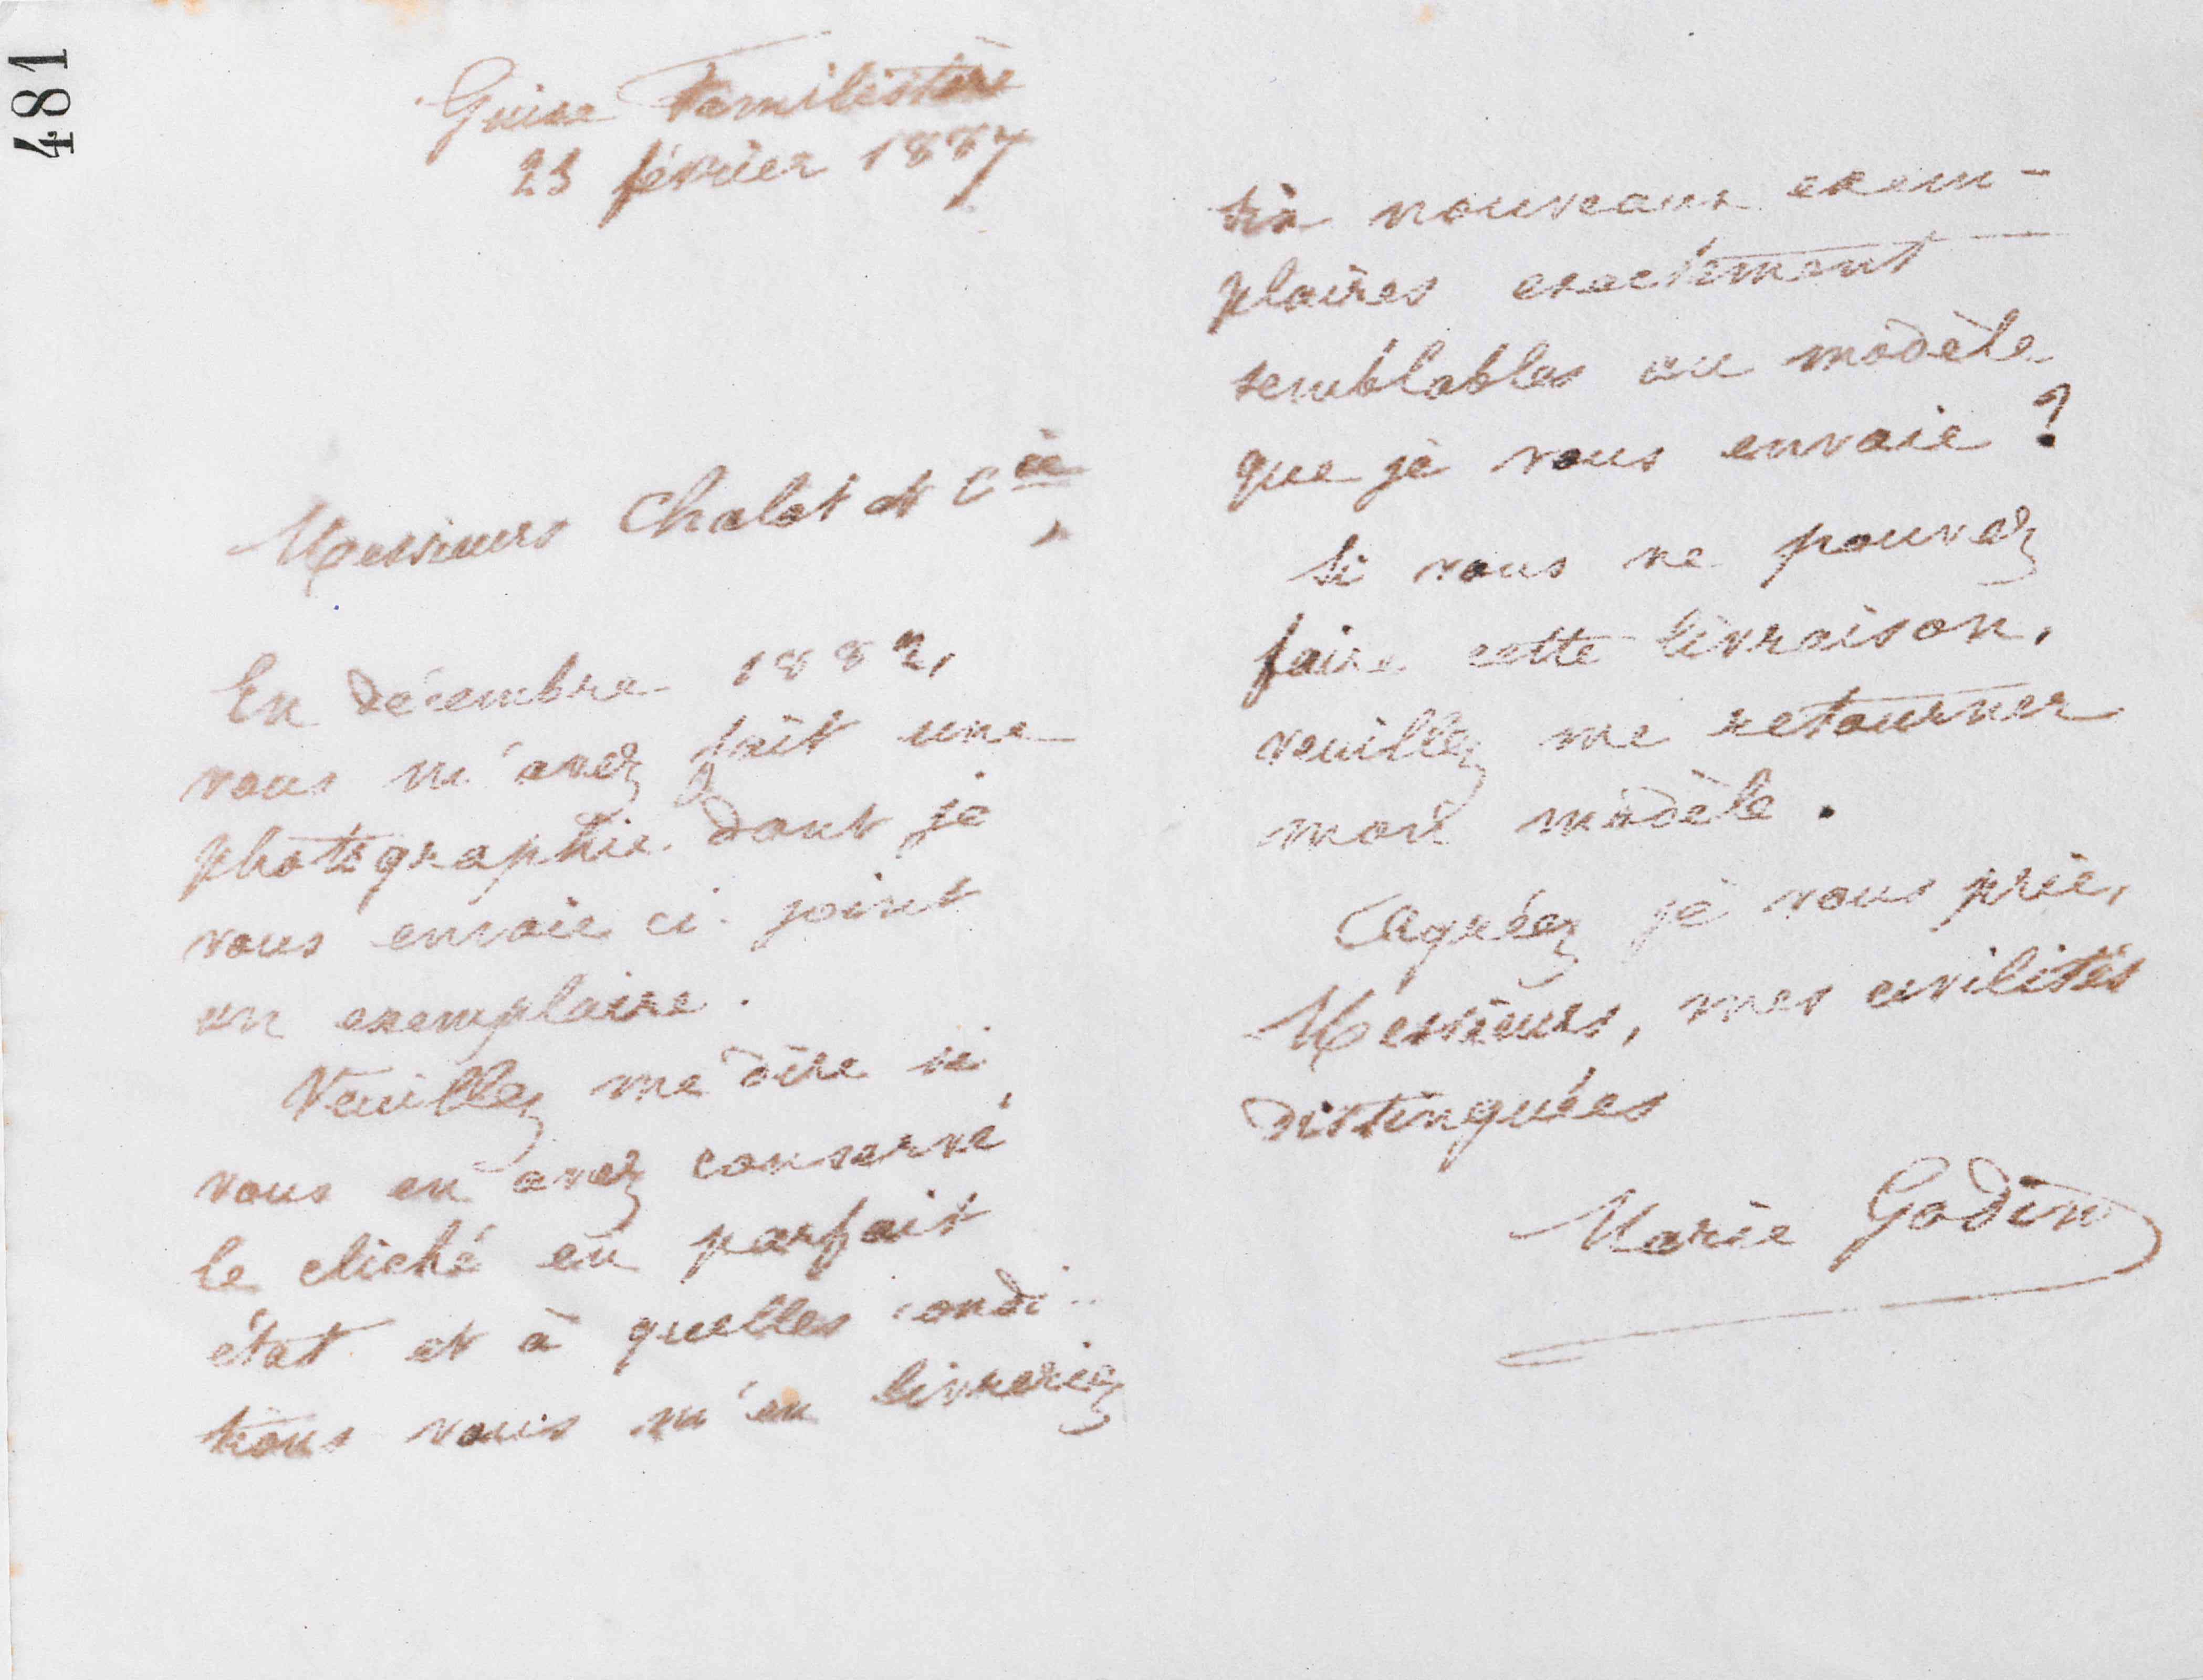 481
Guise Familistère
23 février 1887
Messieurs Chalot et Cie,
En décembre 1882,
vous m'avez fait une
photographie dont je
vous envoie ci-joint
un exemplaire.
Veuillez me dire si
vous en avez conservé
le cliché en parfait
état et à quelles condi-
tions vous m'en livreriez
six nouveaux exem-
plaires exactement
semblables au modèle
que je vous envoie ?
Si vous ne pouvez
faire cette livraison,
veuillez me retourner
mon modèle.
Agréez je vous prie,
Messieurs, mes civilités
distinguées
Marie Godin